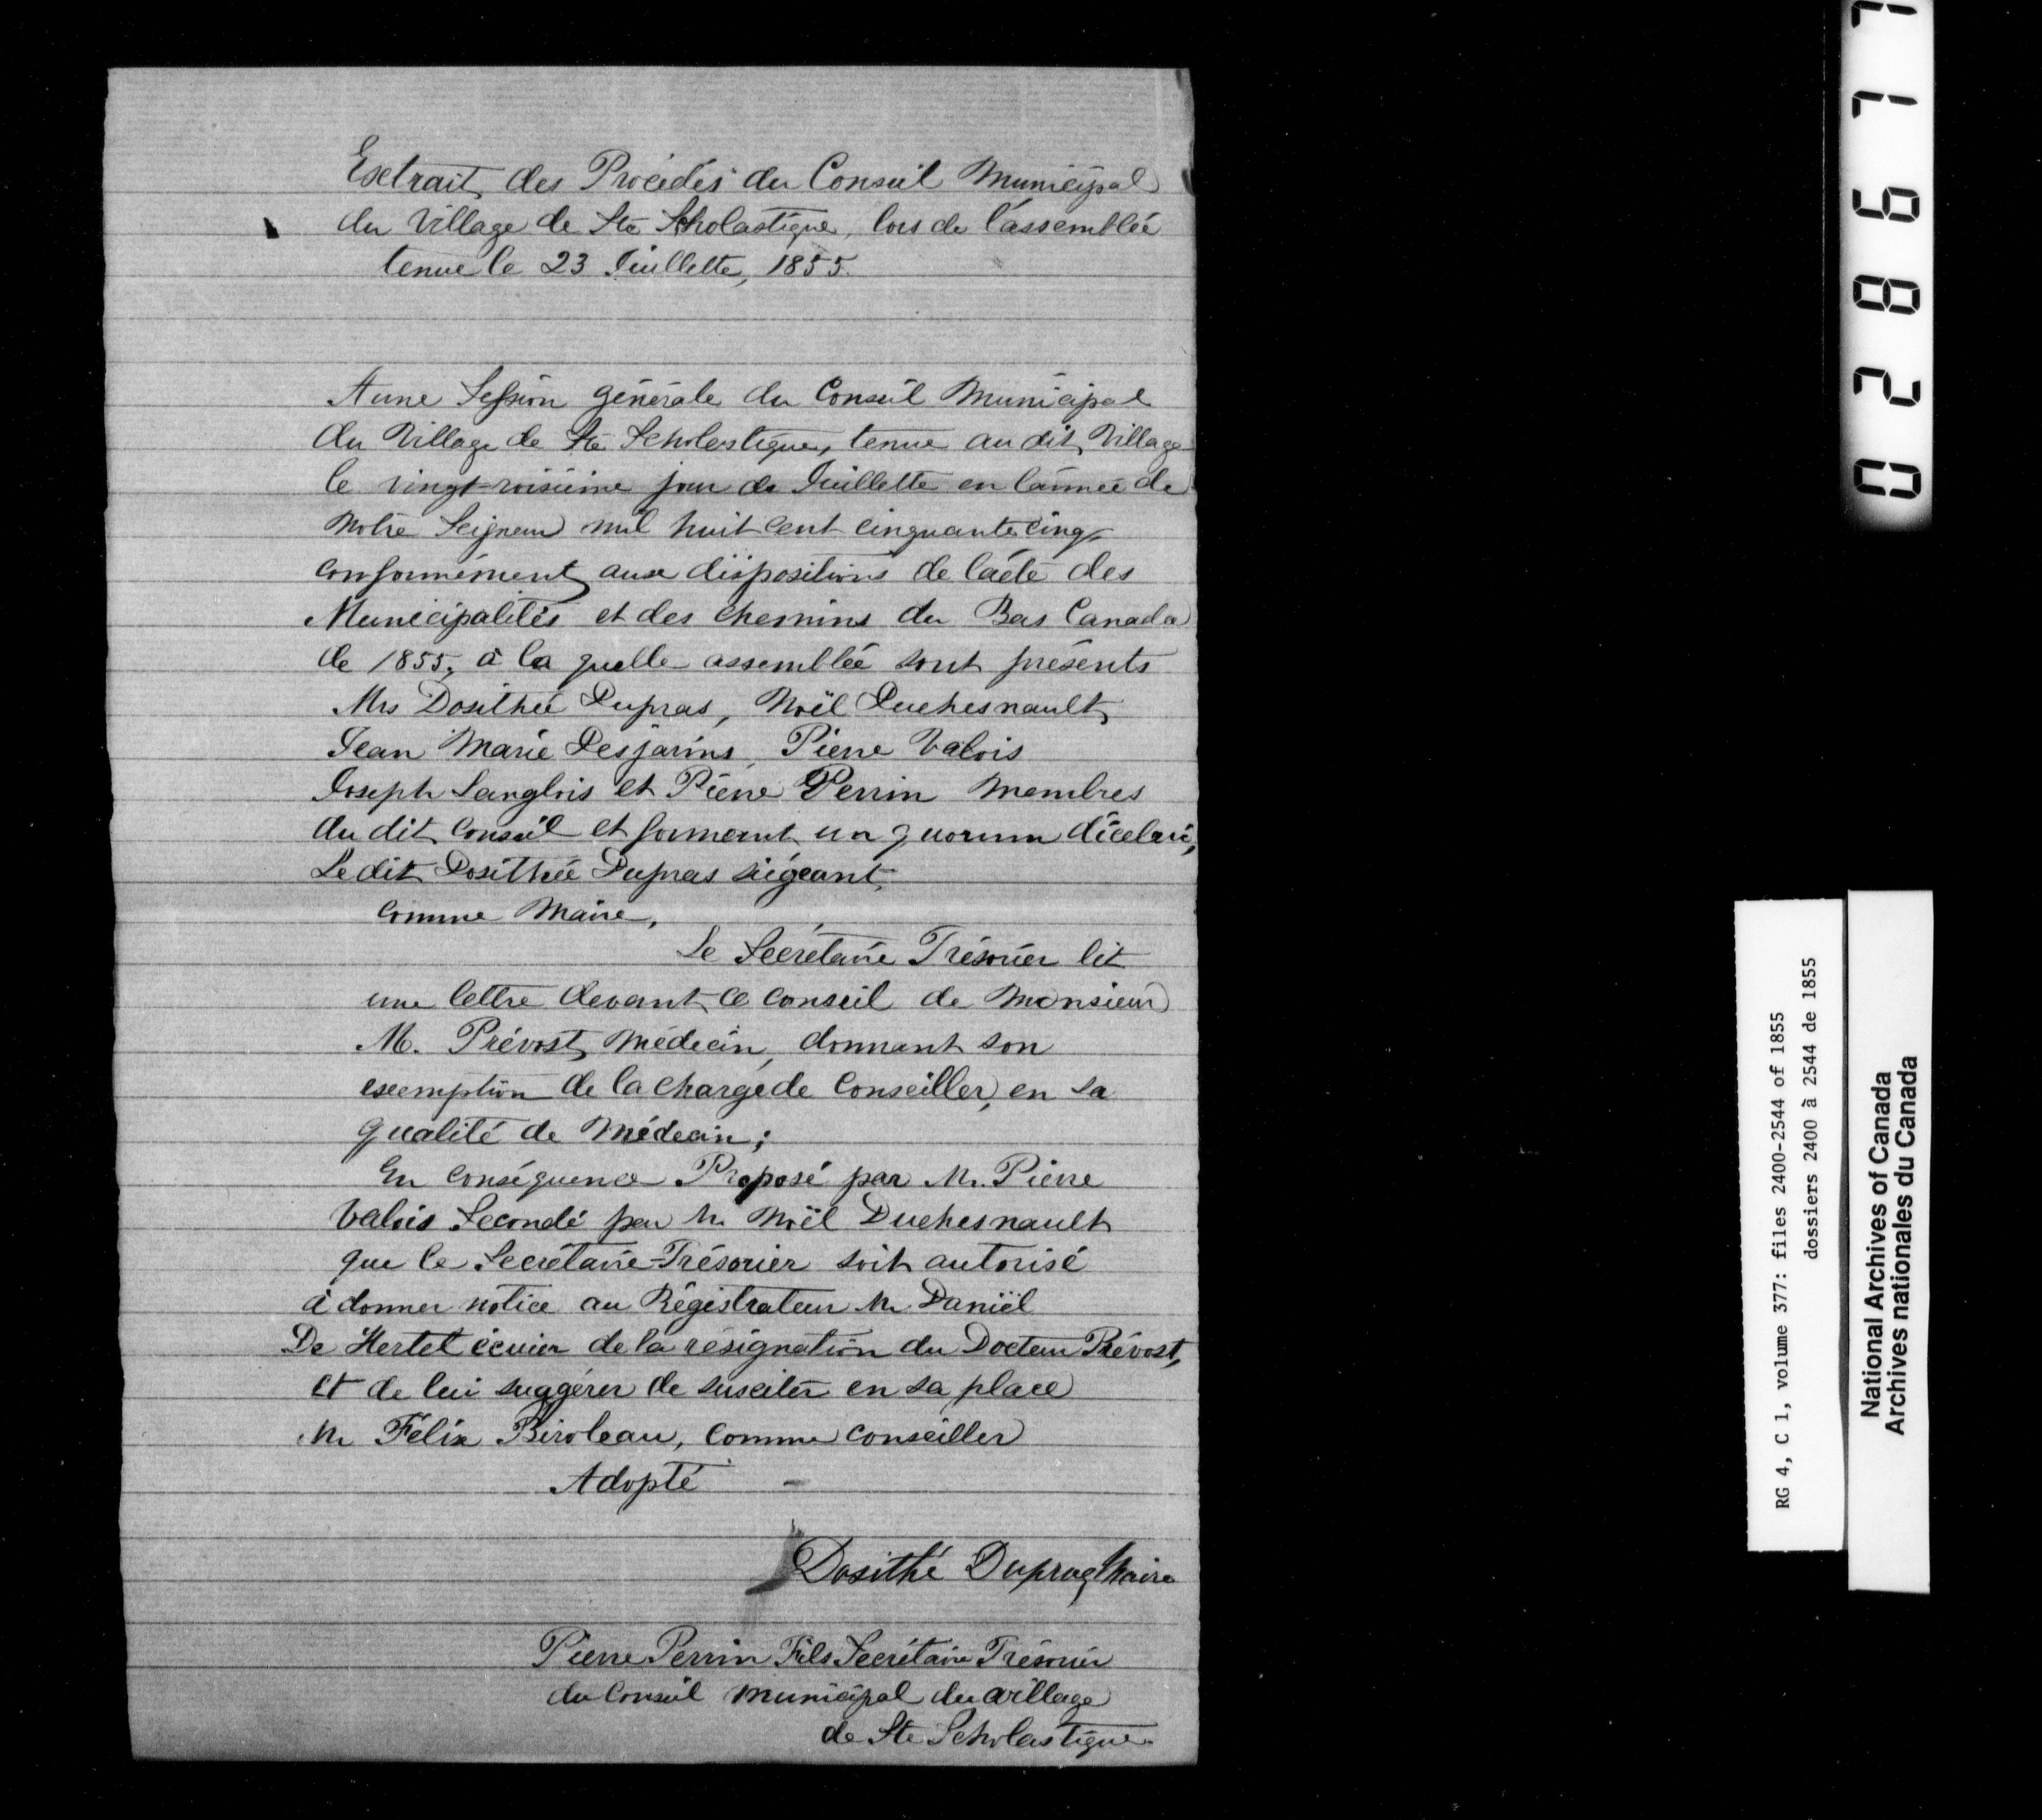 Extrait des Procédés du Conseil Municipal
du Village de Ste Scholastique, lors de l'assemblée
tenue le 23 Juillette, 1855.
A une Session générale du Conseil Municipal
du Village de Ste Scholastique, tenue au dit Village
le vingt-roisième jour de Juillette en l'année de
Notre Seigneur mil huit cent cinquante cinq,
conformément aux dispositions de l'acte des
Municipalités et des chemins du Bas Canada
de 1855, à la quelle assemblée sont présents
Mrs Dosithée Dupras, Noël Duchesnault,
Jean Marie Desjarins, Pierre Valois
Joseph Langlois et Pierre Perrin Membres
du dit Conseil et formant un quorum d'icelui,
Le dit Dosithée Dupras siégeant
comme Maire,
Le Secrétaire Trésorier lit
une lettre devant ce conseil de Monsieur
M. Prévost, Médecin, donnant son
exemption de la charge de Conseiller, en sa
qualité de Médecin;
En conséquence Proposé par Mr. Pierre
Valois Secondé par Mr Noël Duchesnault
que le Secrétaire-Trésorier soit autorisé
à donner notice au Régistrateur Mr Daniël
De Hertel écuier de la résignation du Docteur Prévost,
et de lui suggérer de susciter en sa place
Mr Félix Biroleau, comme conseiller
Adopté -
Dosithé Dupras, Maire
Pierre Perrin Fils Secrétaire Trésorier
du Conseil municipal du village
de Ste Scholastique
028677
RG 4, C 1, volume 377: files 2400-2544 of 1855
dossiers 2400 à 2544 de 1855
National Archives of Canada
Archives nationales du Canada